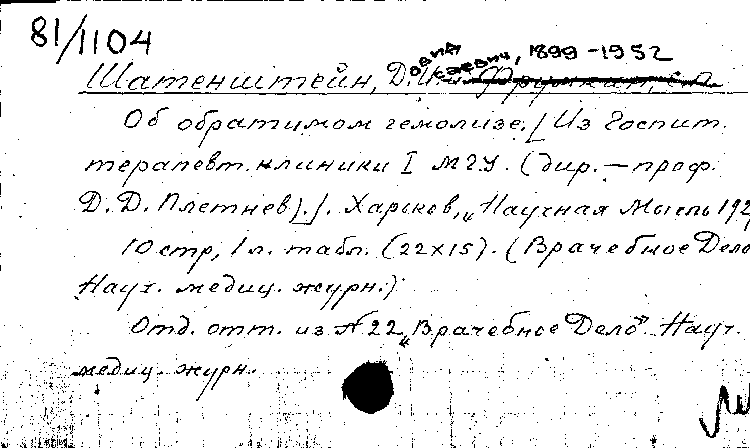 81/1104
Шатенштейн, Давид Исаевич, 1899-1952
Об обратимом гемолизе. [Из Госпит.
терапевт. клиники I МГУ. (дир. — проф.
Д. Д. Плетнев).]. Харьков, „Научная Мысль 192
10 стр, 1 л. табл. (22x15). (Врачебное Дело
Науч. медиц. журн.)
Отд. отт. из № 22 „Врачебное Дело". Науч.
медиц. журн.